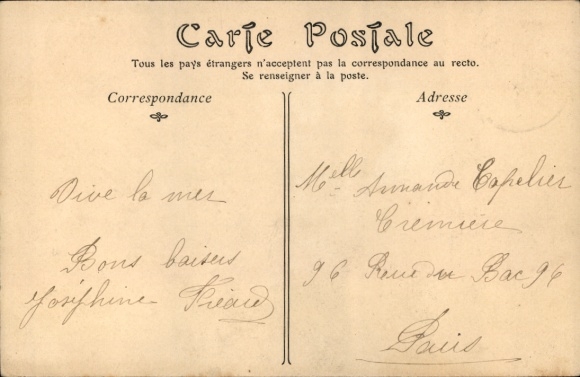 Carte Postale
Tous les pays étrangers n'acceptent pas la correspondance au recto.
Se renseigner à la poste.
Correspondance
Vive la mer
Bons baisers
Joséphine
Adresse
Melle Armande Capelier
Crémière
96 Rue du Bac 96
Paris